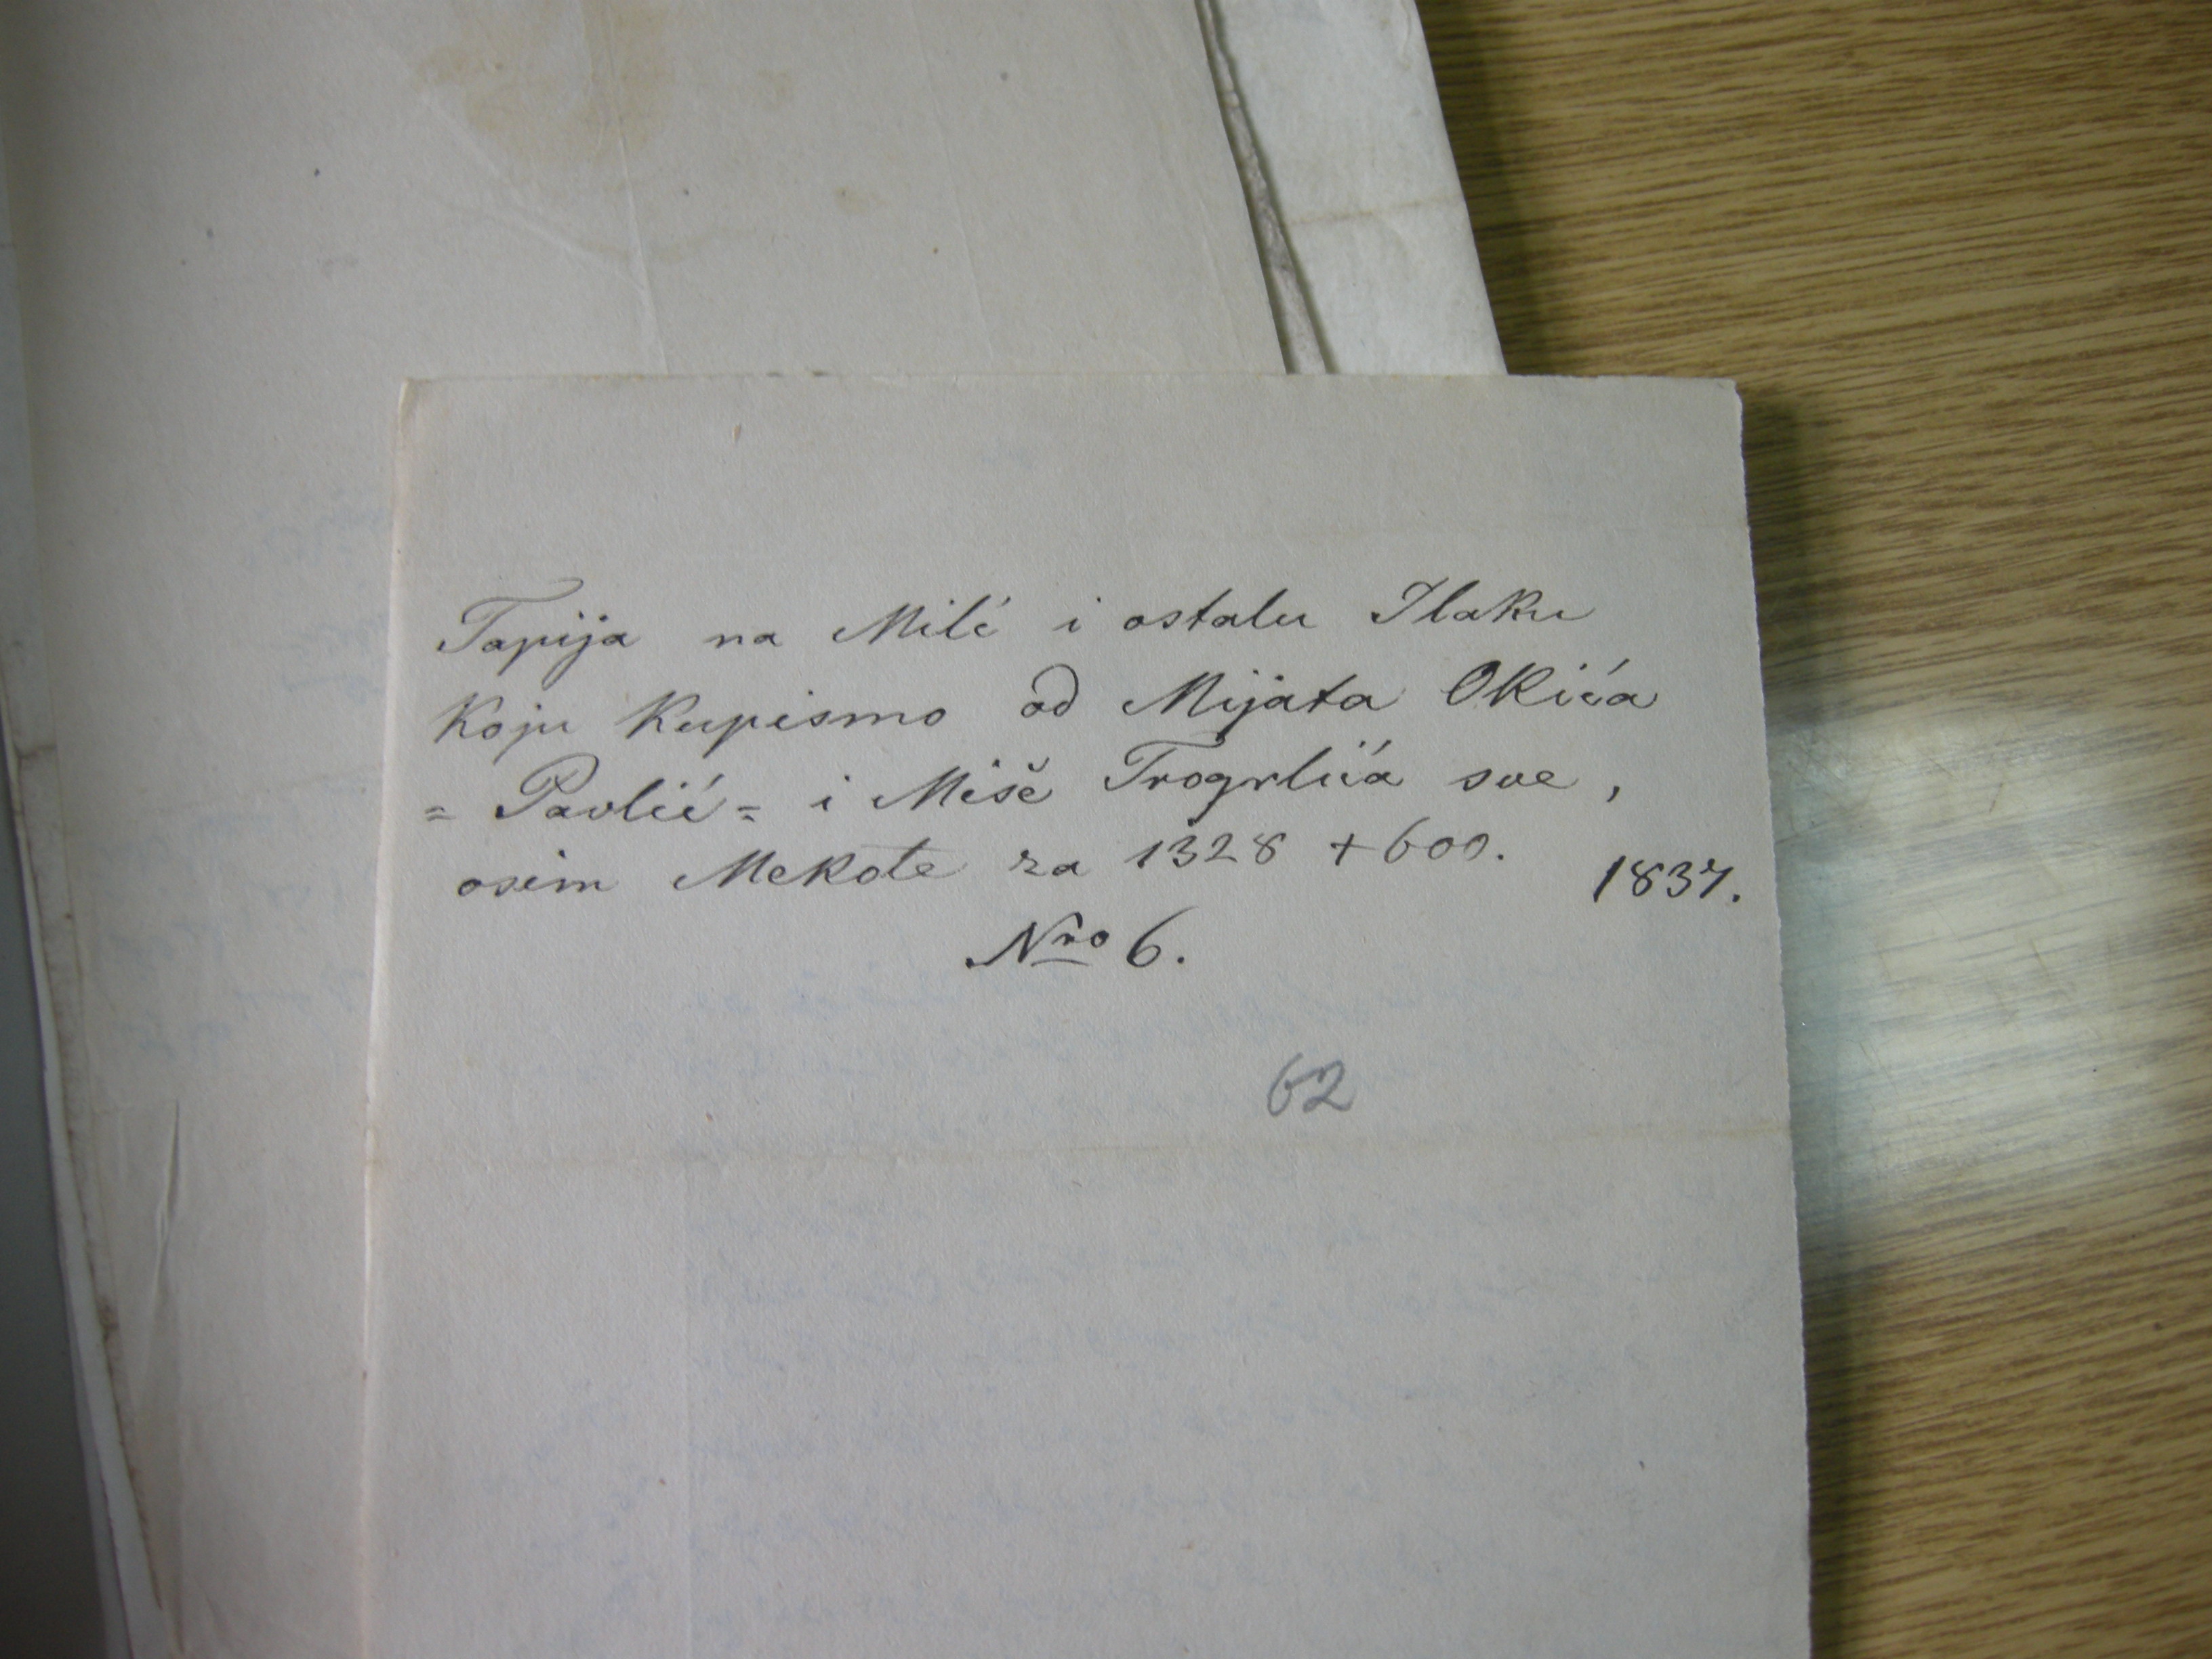 Tapija na Milć i ostalu Ilaku
Koju Kupismo od Mijata Okića
= Pavlić = i Miše Trogrlića sve,
osim Mekote za 1328 + 600. 1837.
Nro 6.
62